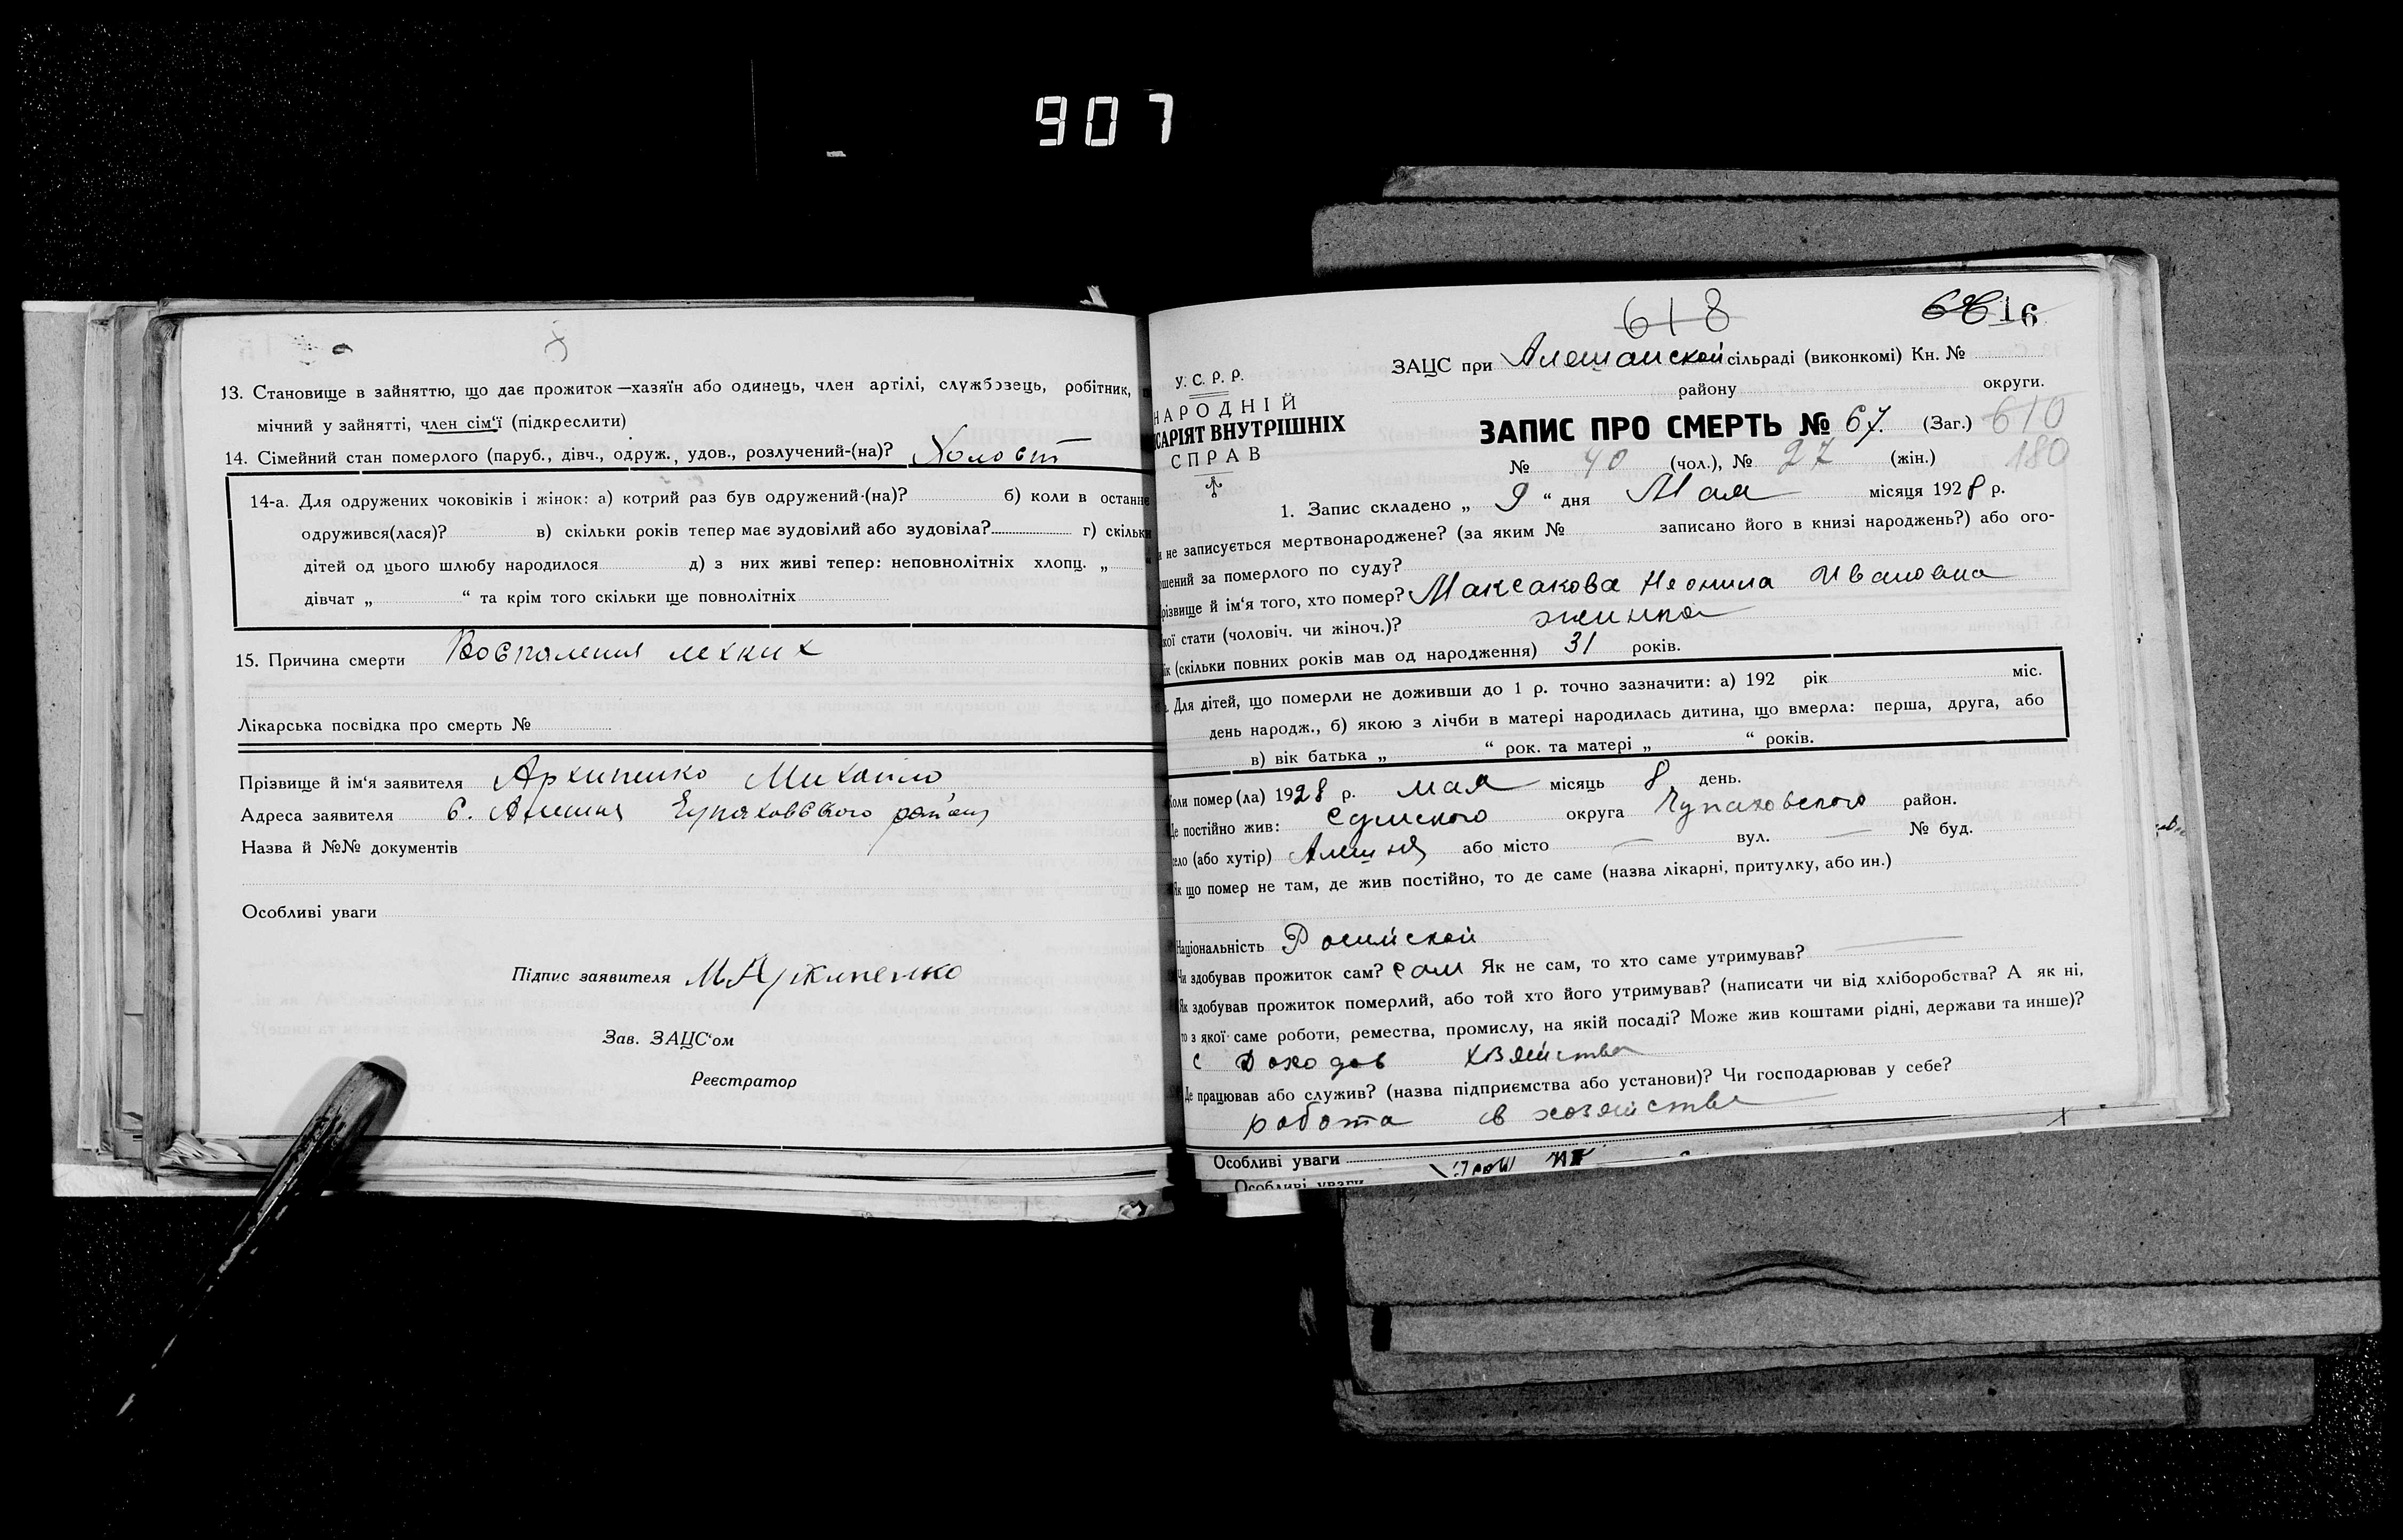 907
13. Становище в зайняттю, що дає прожиток—хазяїн або одинець, член артілі, службовець, робітник,
мічний у зайнятті, член сім'ї (підкреслити)
14. Сімейний стан померлого (паруб., дівч., одруж., удов., розлучений-(на)? Холост
14-а. Для одружених чоковіків і жінок: а) котрий раз був одружений-(на)? б) коли в останнє
одружився(лася)? в) скільки років тепер має зудовілий або зудовіла? г) скільки
дітей од цього шлюбу народилося д) з них живі тепер: неповнолітніх хлопц. „
дівчат „ “ та крім того скільки ще повнолітніх
15. Причина смерти Воспаления лехких
Лікарська посвідка про смерть №
Прізвище й ім'я заявителя Архипенко Михайло
Адреса заявителя с. Алешня Чупаховського району
Назва й №№ документів
Особливі уваги
Підпис заявителя М Архипенко
Зав. ЗАЦС'ом
Реєстратор
618
616
У. С. Р. Р.
НАРОДНІЙ
САРІЯТ ВНУТРІШНІХ
СПРАВ
ЗАЦС при Алешанской сільраді (виконкомі) Кн. №
району округи.
ЗАПИС ПРО СМЕРТЬ № 67. (Заг.) 610
№ 40 (чол.), № 27 (жін.) 180
1. Запис складено „ 9 “ дня Мая місяця 1928 р.
и не записується мертвонароджене? (за яким № записано його в книзі народжень?) або ого-
ошений за померлого по суду?
різвище й ім'я того, хто помер? Максакова Неонила Ивановна
кої стати (чоловіч. чи жіноч.)? жинка
ік (скільки повних років мав од народження) 31 років.
Для дітей, що померли не доживши до 1 р. точно зазначити: а) 192 рік міс.
день народж., б) якою з лічби в матері народилась дитина, що вмерла: перша, друга, або
в) вік батька „ “ рок. та матері „ “ років.
Коли помер(ла) 1928 р. мая місяць 8 день.
Де постійно жив: Сумского округа Чупаховского район.
село (або хутір) Алешня або місто — вул. — № буд.
Як що помер не там, де жив постійно, то де саме (назва лікарні, притулку, або ин.)
Національність Росийской
Чи здобував прожиток сам? сам Як не сам, то хто саме утримував?
Як здобував прожиток померлий, або той хто його утримував? (написати чи від хліборобства? А як ні,
то з якої саме роботи, ремества, промислу, на якій посаді? Може жив коштами рідні, держави та инше)?
с Доходов хзяйства
Де працював або служив? (назва підприємства або установи)? Чи господарював у себе?
робота в хозяйстве
Особливі уваги
Особливі уваги